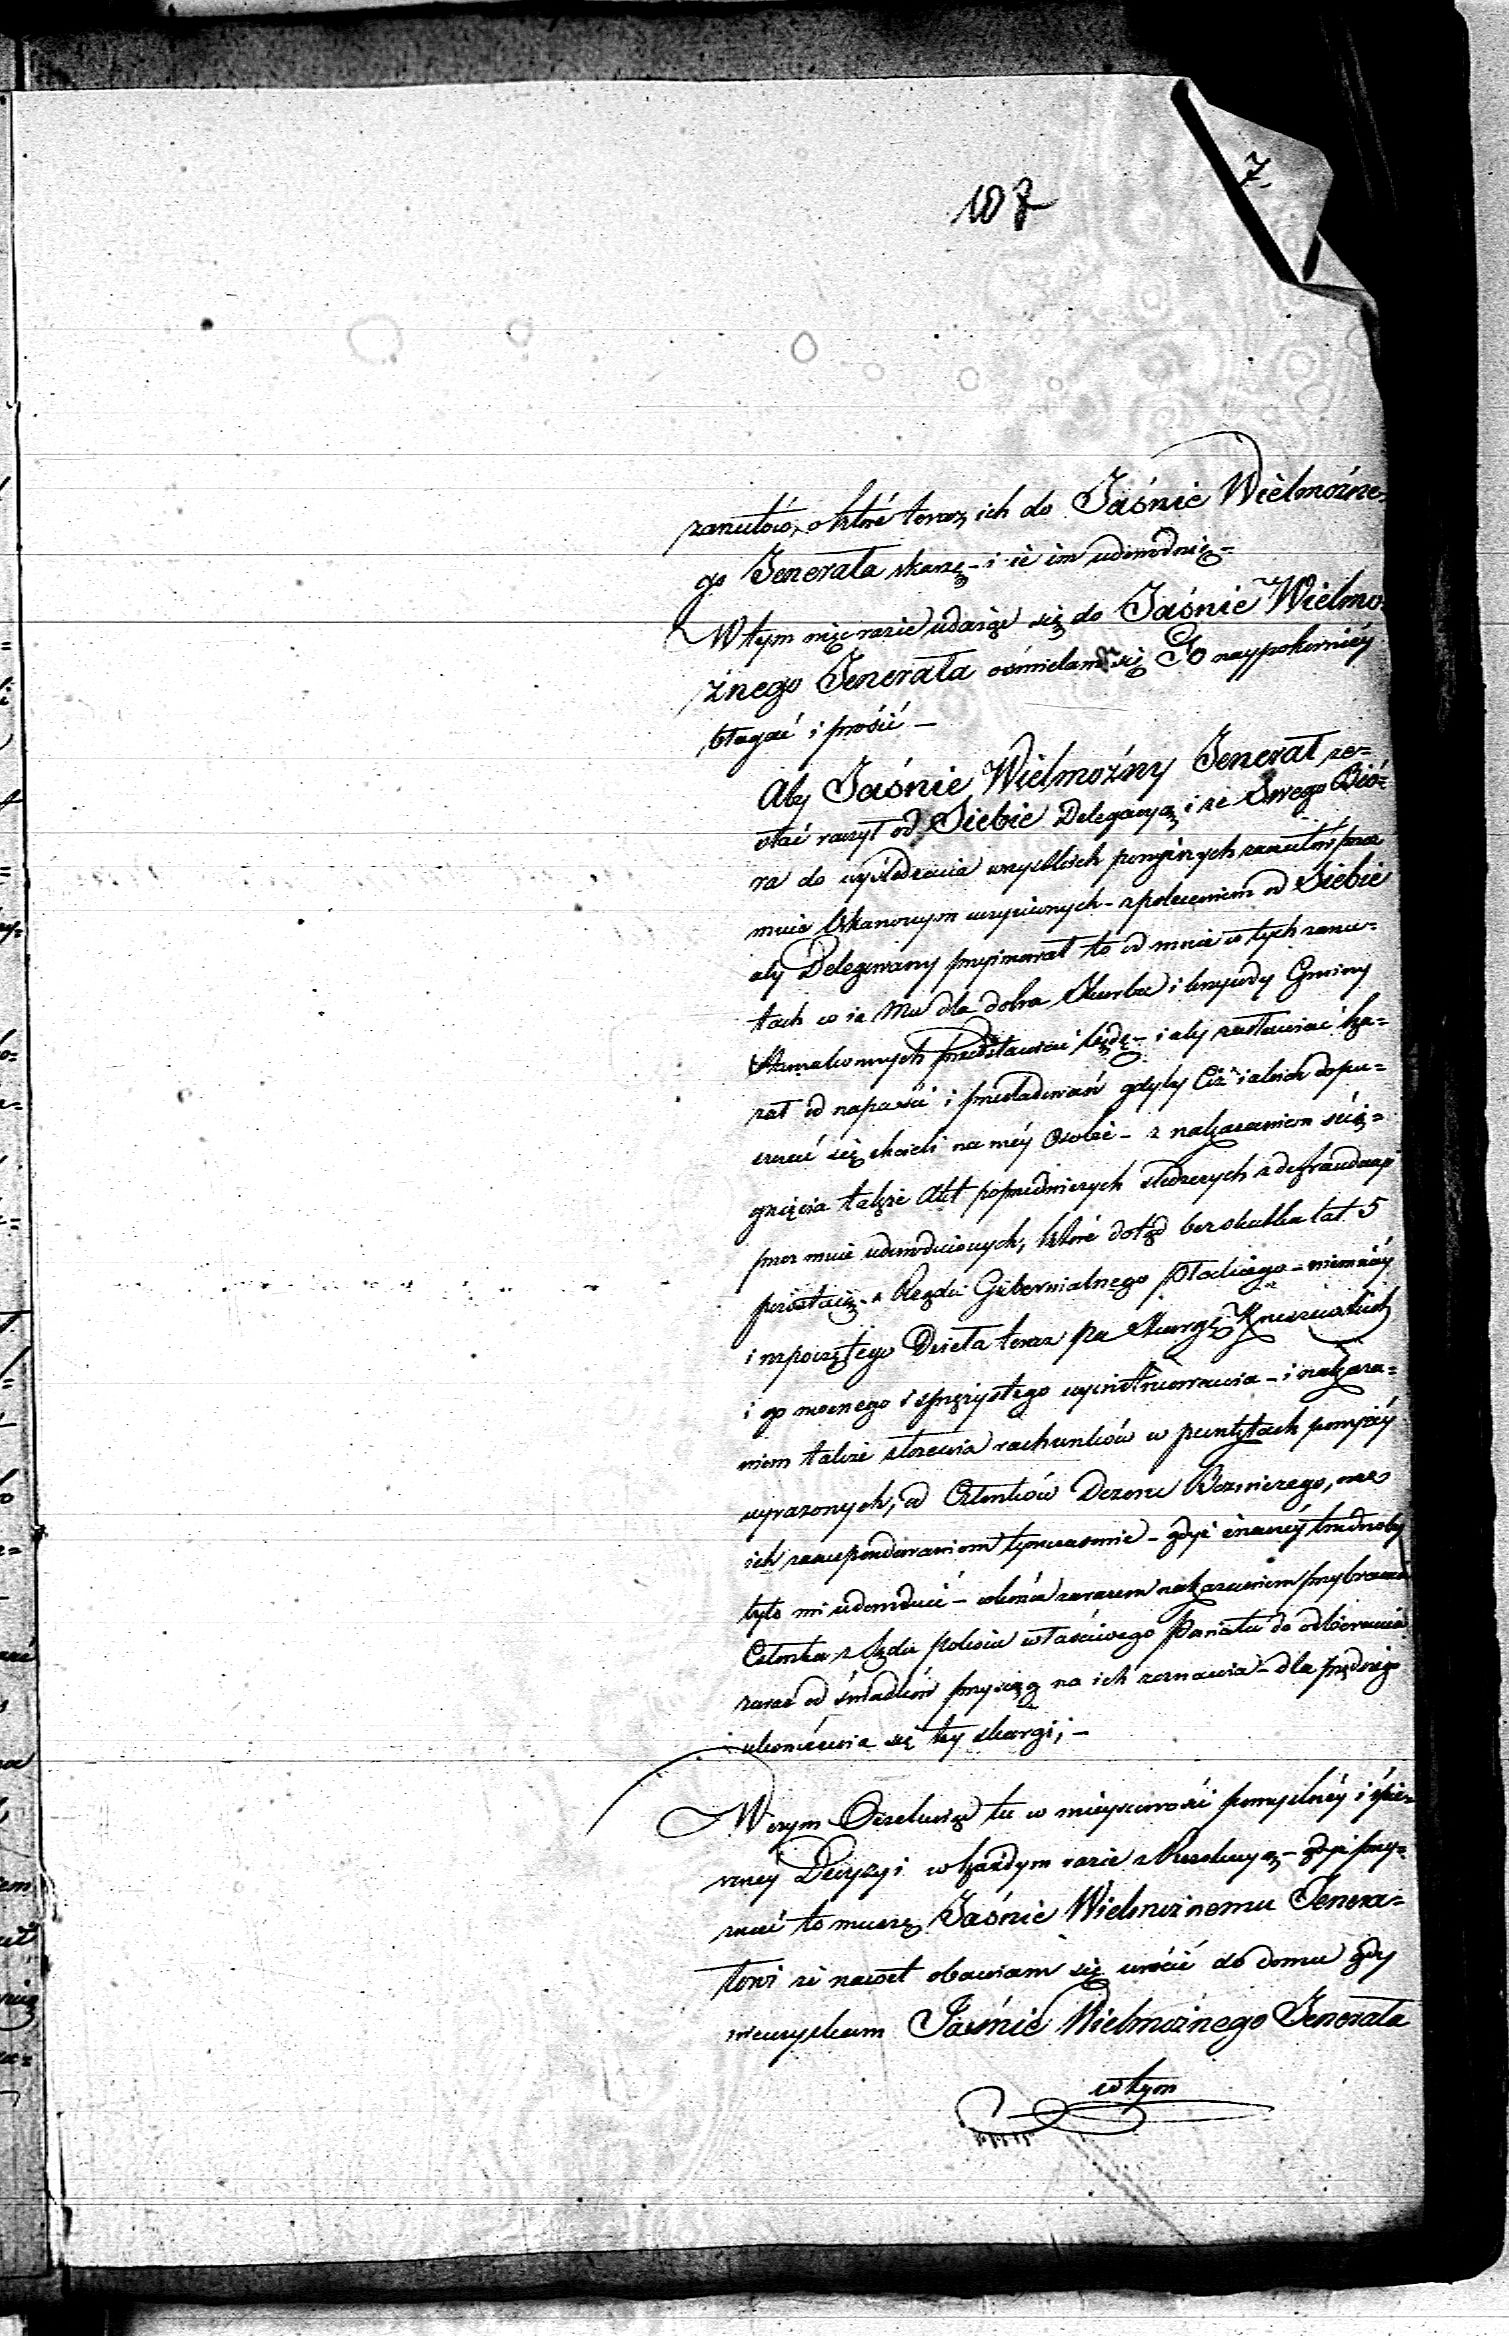 107
7.
zarzutów, o które teraz ich do Jaśnie Wielmożne-
go Jenerała skarzę - i ie im udowodnię =
W tym więc razie udaiąc się do Jaśnie Wielmo-
żnego Jenerała ośmielam się Go naypokorniéy
błagać i prosić -
Aby Jaśnie Wielmożny Jenerał ze=
słać raczył od Siebie Delegacyą i ze Swego Bió=
ra do wyśledzenia wszystkich powyższych zarzutów przez
mnie wzniesionych - z poleceniem od Siebie
aby Delegowany przyimował to od mnie w tych zarzu=
tach co ia Mu dla dobra Skarbu i krzywdy Gminy
przedstawiać będę - i aby zasłaniać ka=
zał od napaści i prześladowań gdyby Ciż iakich dopu=
szczać się chcieli na méy Osobie - z nakazaniem ścią=
gnięcia także Akt poprzedniczych śledczych z defraudacyi
przez mnie udowodnionych, które dotąd bez skutku lat 5
pozostaią z Rządu Gubernialnego Płockiego - niemniéy
i rozpoczętego Dzieła teraz na Skargę
i go mocnego i sprężystego wyindowania - i nakaza=
niem także złożenia rachunków w punktach powyżéy
wyrażonych, od Członków Dozoru Bożniczego, oraz
ich zasuspendowaniem tymczasowie - gdyż inaczéy trudnoby
było mi udowodnić - zarazem nakazaniem przybrania
Członka z Sądu policyi właściwego Powiatu do odbierania
zaraz od świadków przysiąg na ich zeznania - dla prędszego
ukończenia się téy skargi; -
W czym Oczekuiąc tu w mieyscowości pomyślnéy i śpie=
szney Decyzyi w każdym razie z Rezolucyą - gdyż przy=
znać to muszę Jaśnie Wielmożnemu Jenera=
łowi że nawet obawiam się wrócić do domu gdy
nieuzyskam Jaśnie Wielmożnego Jenerała
w tym